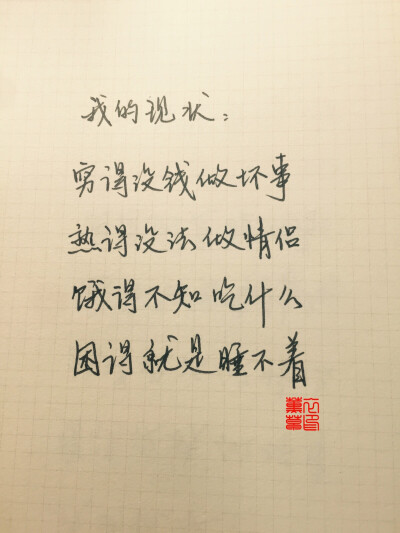 我的现状：
穷得没钱做坏事
热得没法做情侣
饿得不知吃什么
困得就是睡不着